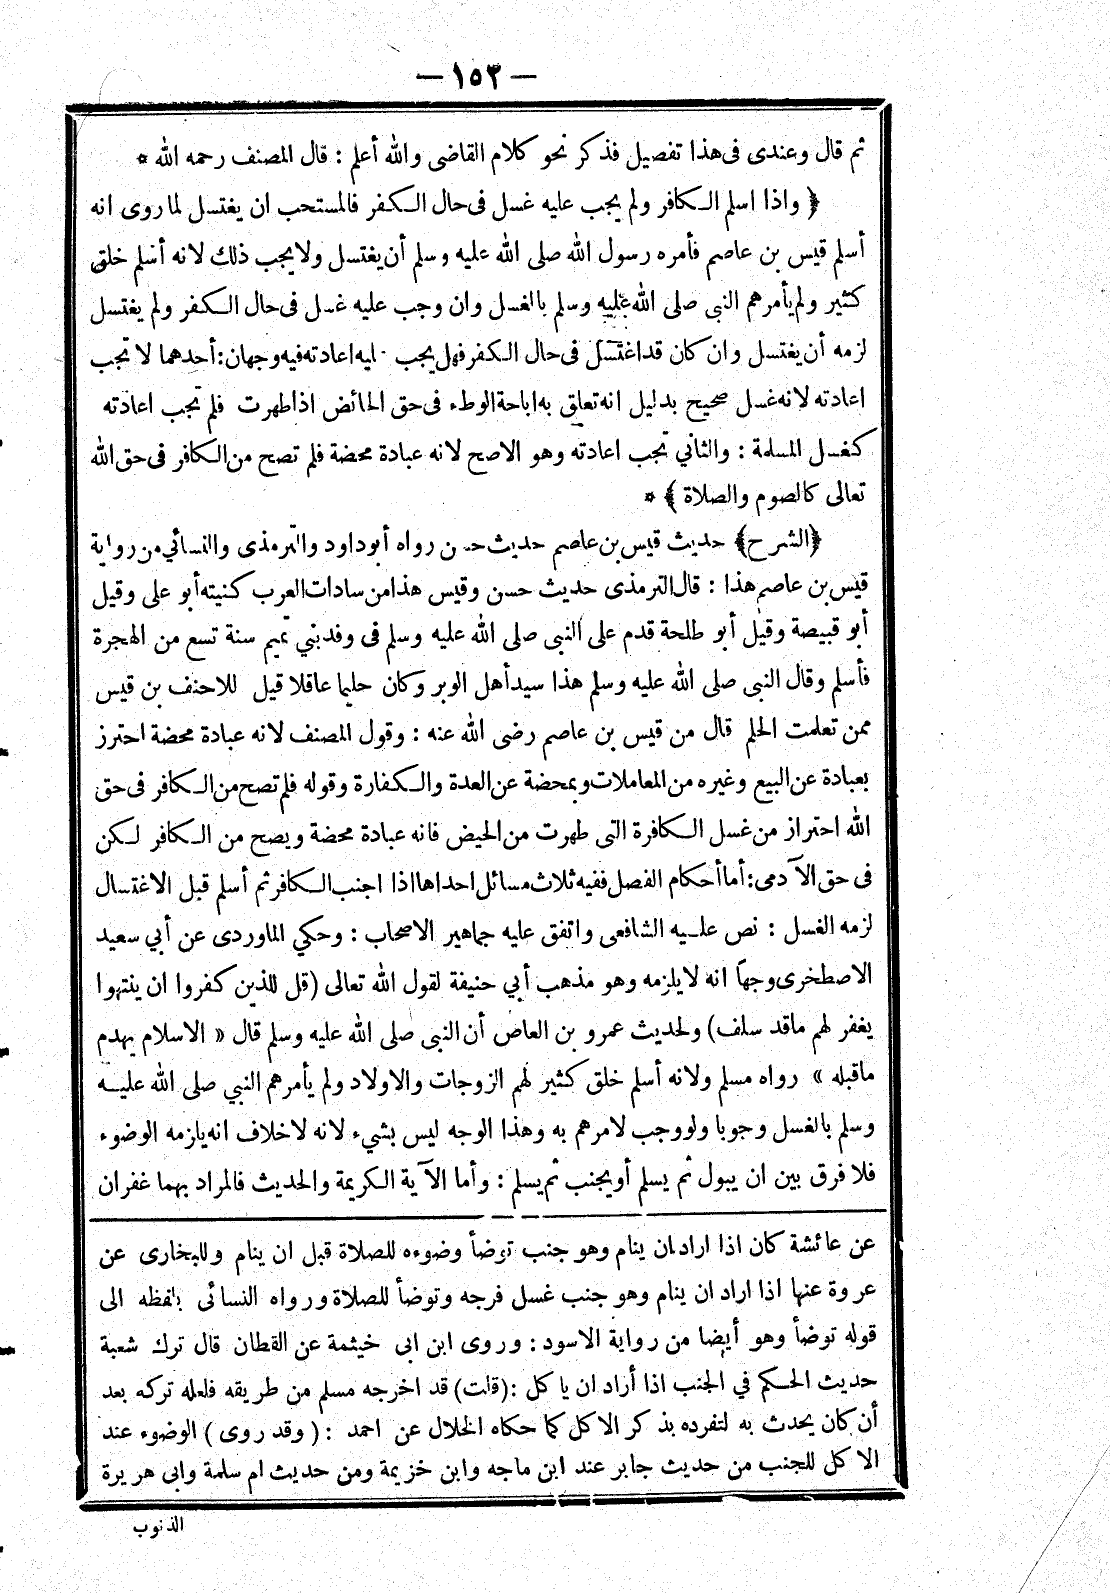 — ١٥٢ —
ثم قال وعندى فى هذا تفصيل فذكر نحو كلام القاضى والله أعلم : قال المصنف رحمه الله *
﴿ واذا اسلم الكافر ولم يجب عليه غسل فى حال الكفر فالمستحب ان يغتسل لما روى انه
أسلم قيس بن عاصم فأمره رسول الله صلى الله عليه وسلم أن يغتسل ولا يجب ذلك لانه أسلم خلق
كثير ولم يأمرهم النبى صلى الله عليه وسلم بالغسل وان وجب عليه غسل فى حال الكفر ولم يغتسل
لزمه أن يغتسل وان كان قد اغتسل فى حال الكفر فهل يجب ليه اعادته فيه وجهان : أحدهما لا تجب
اعادته لانه غسل صحيح بدليل انه تعلق به اباحة الوطء فى حق الحائض اذا طهرت فلم تجب اعادته
كغسل المسلمة : والثاني تجب اعادته وهو الاصح لانه عبادة محضة فلم تصح من الكافر فى حق الله
تعالى كالصوم والصلاة ﴾ *
﴿الشرح﴾ حديث قيس بن عاصم حديث حسن رواه أبو داود والترمذى والنسائي من رواية
قيس بن عاصم هذا : قال الترمذى حديث حسن وقيس هذا من سادات العرب كنيته أبو على وقيل
أبو قبيصة وقيل أبو طلحة قدم على النبى صلى الله عليه وسلم فى وفد بني تميم سنة تسع من الهجرة
فأسلم وقال النبى صلى الله عليه وسلم هذا سيد أهل الوبر وكان حليما عاقلا قيل للاحنف بن قيس
ممن تعلمت الحلم قال من قيس بن عاصم رضى الله عنه : وقول المصنف لانه عبادة محضة احترز
بعبادة عن البيع وغيره من المعاملات وبمحضة عن العدة والكفارة وقوله فلم تصح من الكافر فى حق
الله احتراز من غسل الكافرة التى طهرت من الحيض فانه عبادة محضة ويصح من الكافر لكن
فى حق الآدمى : أما أحكام الفصل ففيه ثلاث مسائل احداها اذا اجنب الكافر ثم أسلم قبل الاغتسال
لزمه الغسل : نص عليه الشافعى واتفق عليه جماهير الاصحاب : وحكي الماوردى عن أبي سعيد
الاصطخرى وجهاً انه لا يلزمه وهو مذهب أبي حنيفة لقول الله تعالى (قل للذين كفروا ان ينتهوا
يغفر لهم ماقد سلف) ولحديث عمرو بن العاص أن النبى صلى الله عليه وسلم قال « الاسلام يهدم
ماقبله » رواه مسلم ولانه أسلم خلق كثير لهم الزوجات والاولاد ولم يأمرهم النبي صلى الله عليه
وسلم بالغسل وجوبا ولو وجب لامرهم به وهذا الوجه ليس بشيء لانه لاخلاف انه يلزمه الوضوء
فلا فرق بين ان يبول ثم يسلم أو يجنب ثم يسلم : وأما الآية الكريمة والحديث فالمراد بهما غفران
عن عائشة كان اذا اراد ان ينام وهو جنب توضأ وضوءه للصلاة قبل ان ينام وللبخارى عن
عروة عنها اذا اراد ان ينام وهو جنب غسل فرجه وتوضأ للصلاة ورواه النسائى بلفظه الى
قوله توضأ وهو أيضا من رواية الاسود : وروى ابن ابى خيثمة عن القطان قال ترك شعبة
حديث الحكم في الجنب اذا أراد ان ياكل : (قلت) قد اخرجه مسلم من طريقه فلعله تركه بعد
أن كان يحدث به لتفرده بذكر الاكل كما حكاه الخلال عن احمد : (وقد روى) الوضوء عند
الاكل للجنب من حديث جابر عند ابن ماجه وابن خزيمة ومن حديث ام سلمة وابى هريرة
الذنوب